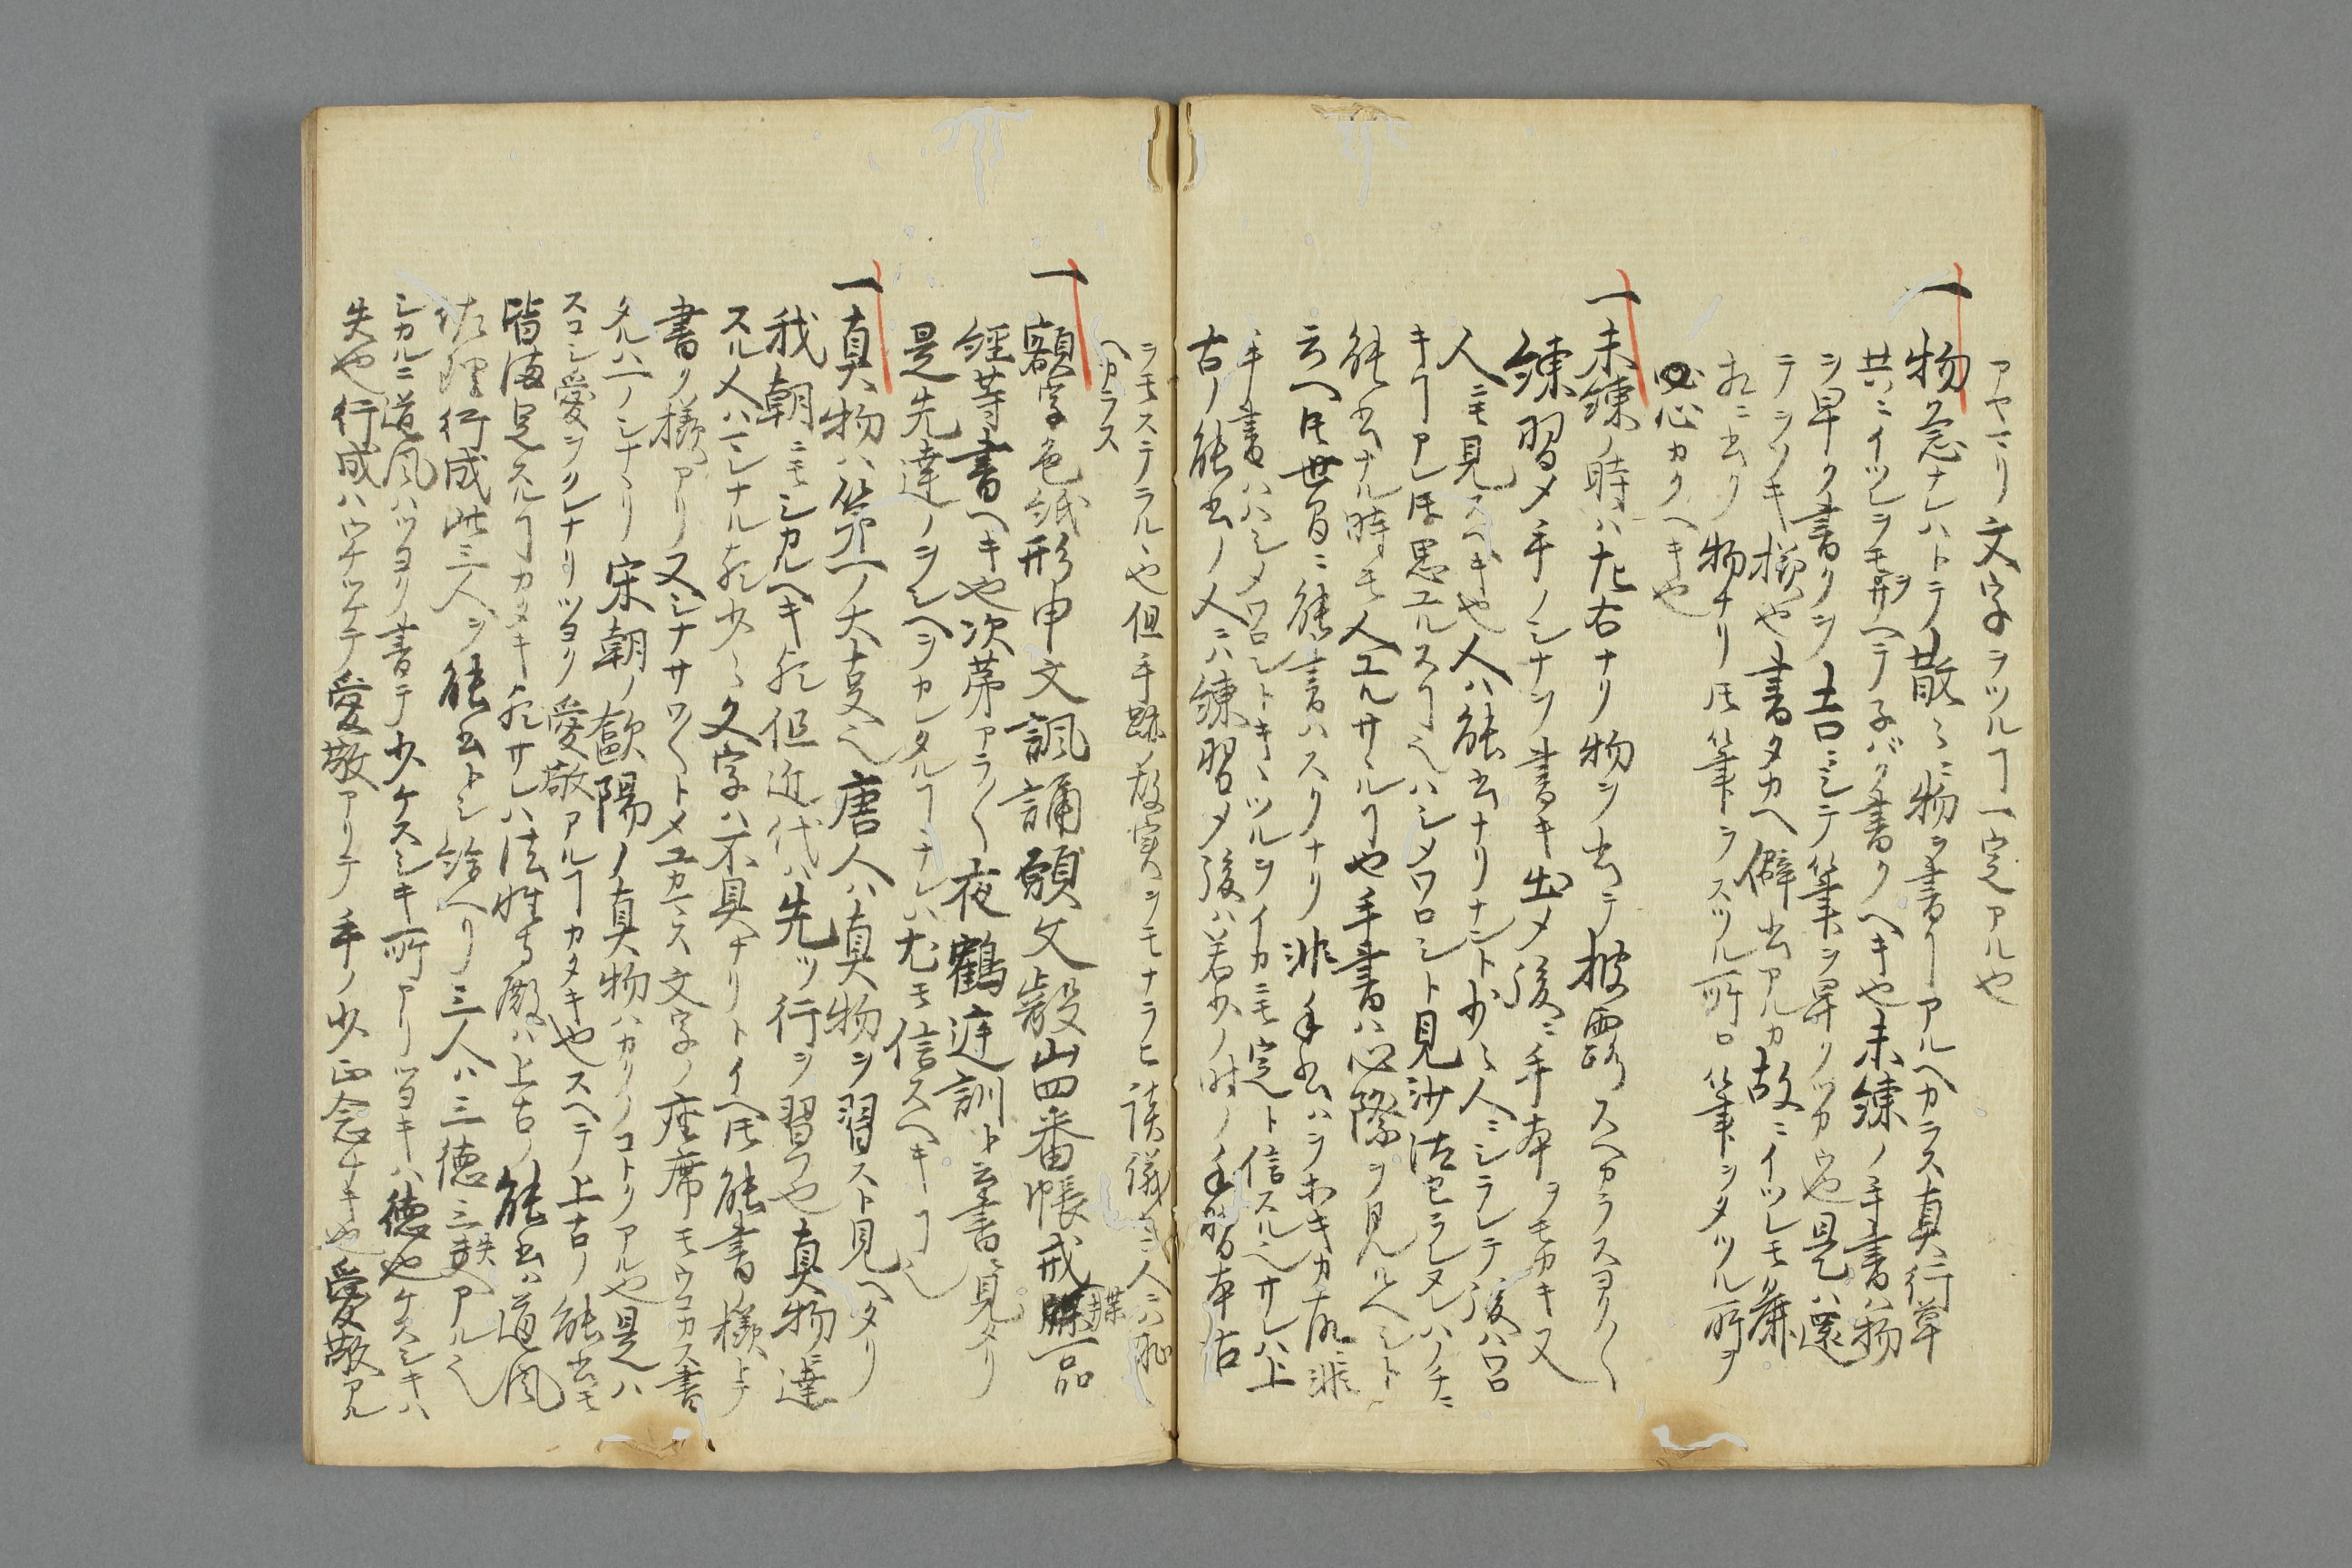 アヤマリ文字ヲツルヿ一定アルヤ
一物忩ナレハトテ散々ニ物ヲ書クヿアルヘカラス真行草
共ニイツレヲモヘテ子バク書クヘキ也未練ノ手書ハ物
ヲ早ク書クヲ吉ニシテ筆ヲ早クツカウ也是ハ還
テシツキ様也書タカヘ僻出アルカ故ニイツレモク麻
相ニ出ク物ナリ𪜈筆トラスツル所ロ筆ヲタツル所ヲ
心カクヘキ也
一未練ノ時ハ左右ナリ物ヲ出テ披露スヘカラスヨク〱
練習メ手ノシナヲ書キ出メ後ニ手本ヲモカキ又
人ニモ見スヘキ也人ハ能書ナリナント少々人ニシラレテ後ハワロ
キヿアレ𪜈思ユルスヿハシメワロシト見沙汰セラレヌレハノチニ
能書ナル時モ人ユルサヽルヿ也手書ハ心際ヲ見ルヘシト
云ヘ𪜈世間ニ能書ハスクナリ非手書ハヲホキカ故ニ非
手書ハハシメワロシトキヽツルヲイカニモ定ト信スル也サレハ上
古ノ能書ノ人ニハ練習メ後ハ若少ノ時ノ手習本古
ヲモステラルヽ也但手跡ノ故実ヲモナラヒ談儀モ人ニハ恥
ヘカラス
一額字色紙形申文諷誦願文巌山四番帳戒牒一品
經等書ヘキ也次第アラ〱夜鶴庭訓ト云書ニ見タリ
是先達ノヲシヘヲカレタルヿナレハ尤モ信スヘキヿ也
一真物ハ第一ノ大事也唐人ハ真物ヲ習スト見ヘタリ
我朝ニモシカルヘキ歟但近代ハ先ツ行ヲ習フ也真物ニ達
スル人ハマレナル歟少々文字ハ不具ナリトイヘ𪜈能書ノ様トテ
書ク様アリ又シナサワ〱トメユカマス文字ノ座席モウコカス書
タルハ一ノシナナリ宋朝ノ歐陽ノ真物ハカリノコトクアル也是ハ
スコシ愛ヲクレナリツヨク愛敬アルヿカタキ也スヘテ上古ノ能書モ
皆満足スルヿカタキ歟サレハ法性寺殿ハ上古ノ能書ハ道風
佐理行成此三人ヲ能書トシ給ヘリ三人ハ三徳三失アル也
シカルニ道風ハツヨク書テ少ケスシキ所アリツヨキハ徳也ケスシキハ
失也行成ハウチツケテ愛敬アリテ手ノ少正念ナキ也愛敬アル